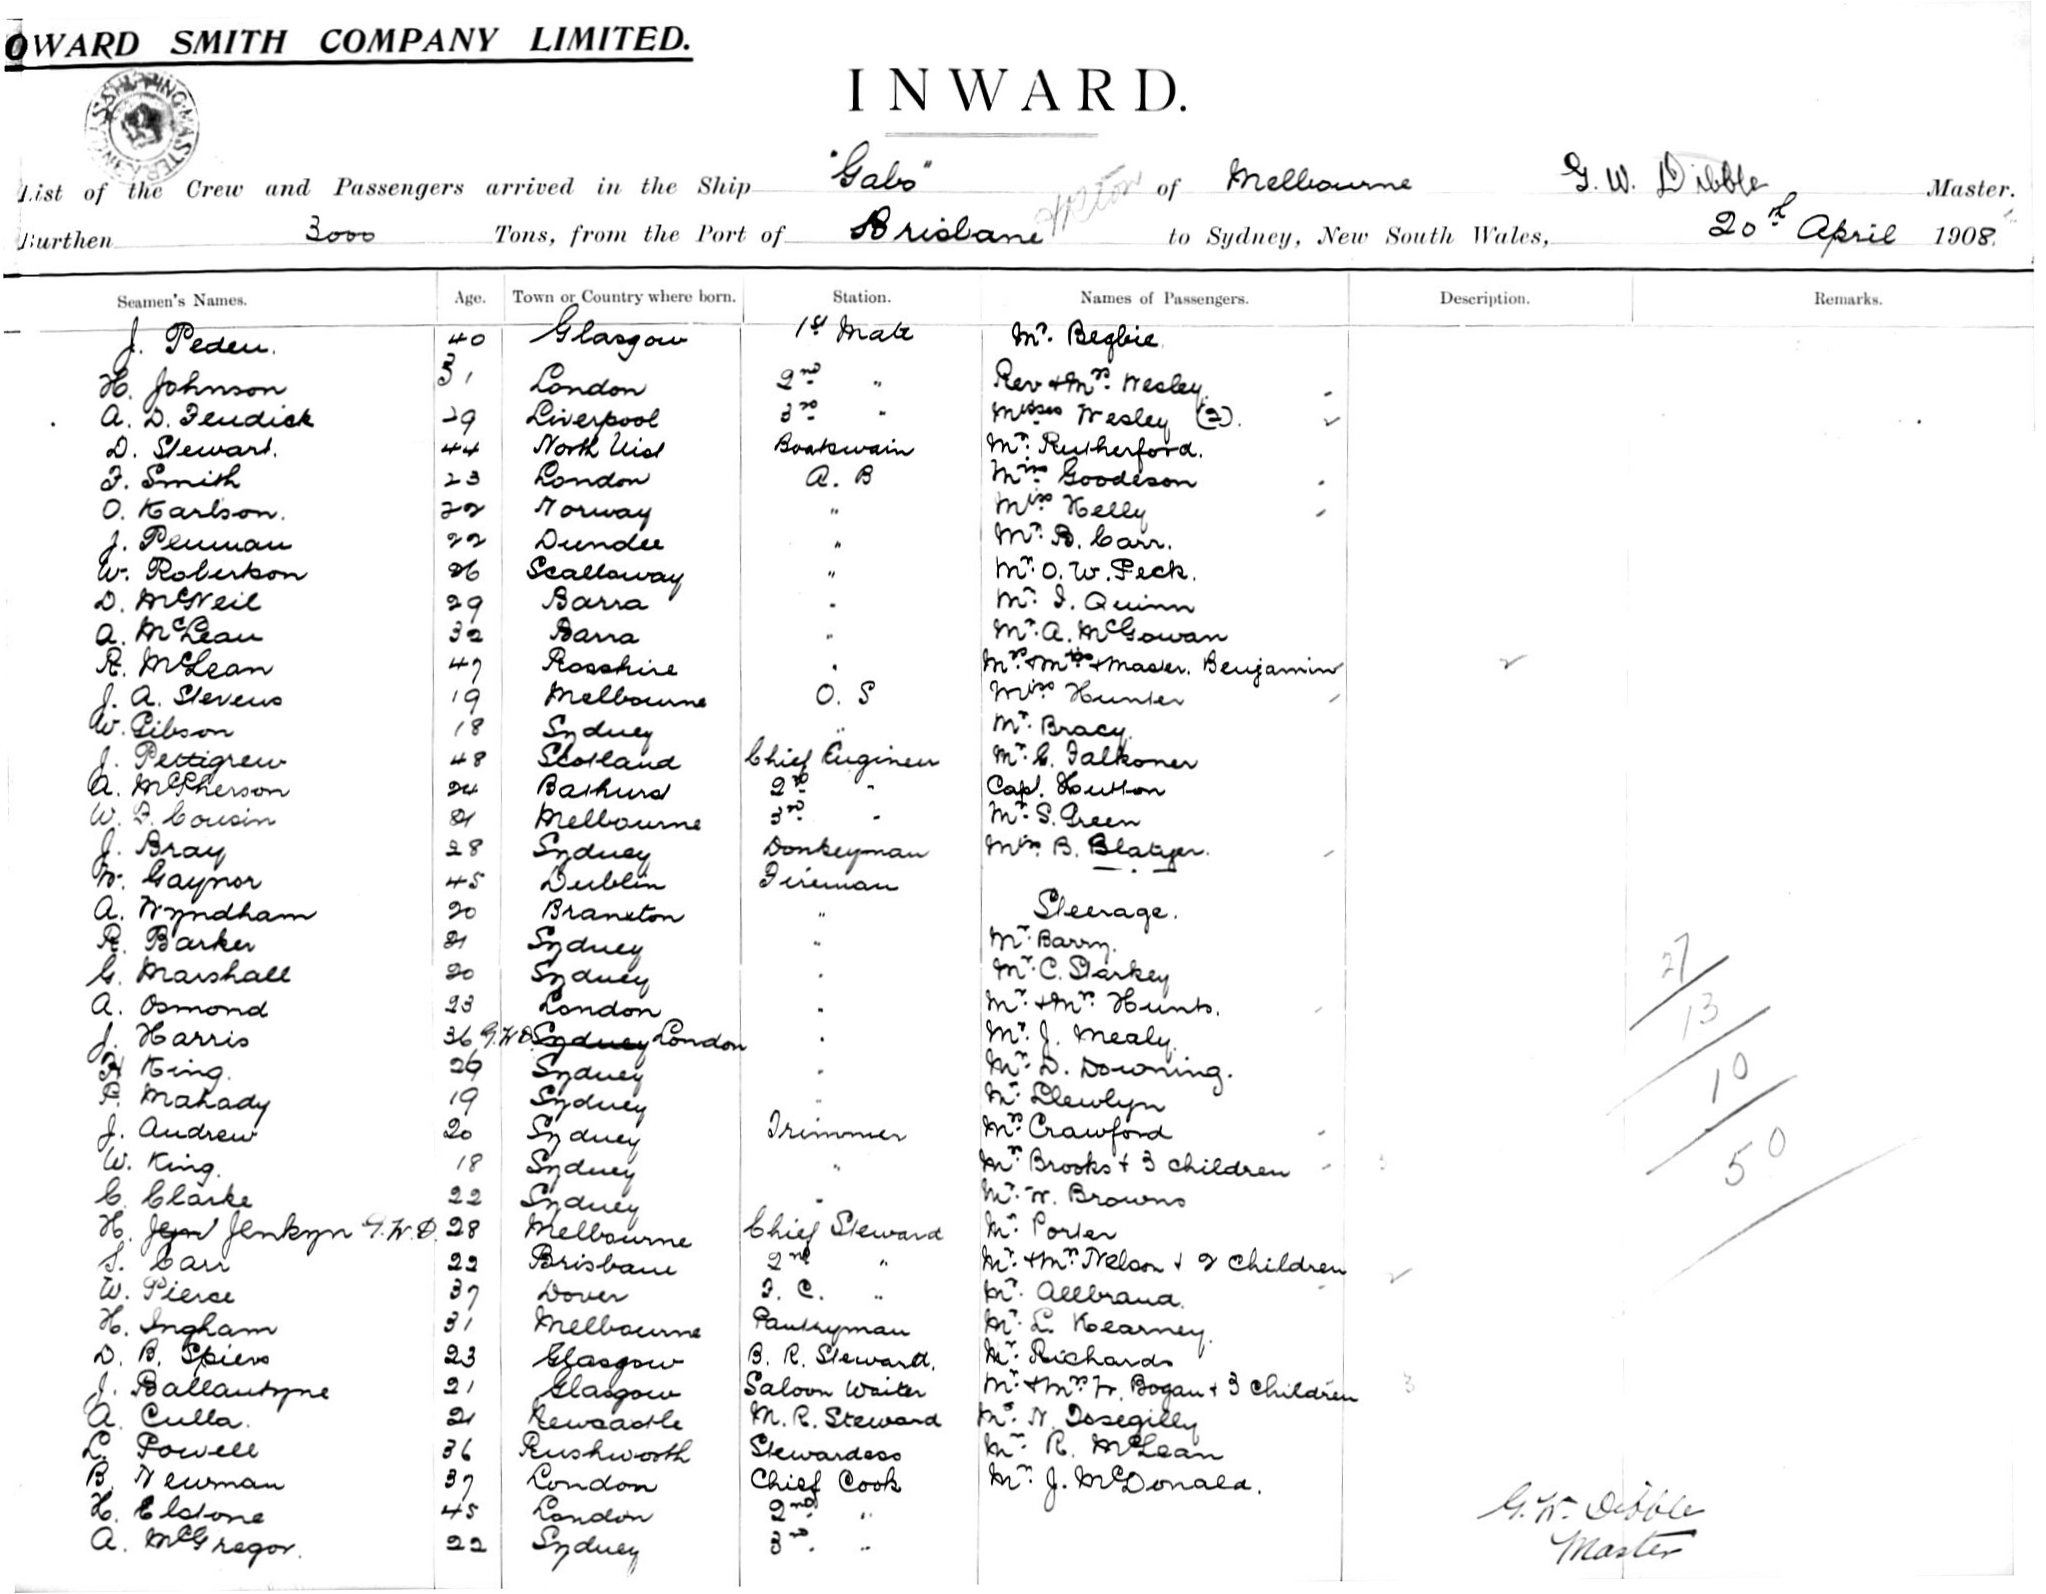 OWARD SMITH COMPANY LIMITED.
INWARD.
List of the Crew and Passengers arrived in the Ship "Gabo" of Melbourne G. W. Dibble Master.
Burthen 3000 Tons, from the Port of Brisbane to Sydney, New South Wales, 20th April 1908.
Seamen's Names. Age. Town or Country where born. Station. Names of Passengers. Description. Remarks.
J. Peden. 40 Glasgow 1st Mate Mr. Begbie
H. Johnson 31 London 2nd " Rev + Mrs. Wesley
A. D. Fendick 29 Liverpool 3rd " Misses Wesley (2).
D. Stewart. 44 North Uist Boatswain Mr. Rutherford.
F. Smith 23 London A. B Miss Goodeson
O. Karlson. 22 Norway " Miss Kelly
J. Penman 22 Dundee " Mr. B. Carr.
W. Robertson 26 Scalloway " Mr. O. W. Peck.
D. McNeil 29 Barra " Mr. J. Quinn
A. McLean 32 Barra " Mr. A. McGowan
R. McLean 47 Rosshire " Mr. + Mrs + Master. Benjamin
J. A. Stevens 19 Melbourne O. S Miss Hunter
W. Gibson 18 Sydney " Mr. Bracy.
J. Pettigrew 48 Scotland Chief Engineer Mr. C. Falkoner
A. McPherson 24 Bathurst 2nd " Capt. Hutton
W. F. Cousin 21 Melbourne 3rd " Mr. S. Green
J. Bray 28 Sydney Donkeyman Miss B.
W. Gaynor 45 Dublin Fireman
A. Wyndham 20 Branxton " Steerage.
R. Barker 21 Sydney " Mr. Barry.
G. Marshall 20 Sydney " Mr. C. Starkey
A. Osmond 23 London " Mr. + Mrs. Hunts.
J. Harris 36 G.W.D. Sydney London " Mr. J. Mealy.
H King. 26 Sydney " Mr. D. Downing.
P. Mahady 19 Sydney " Mr. Llewlyn
J. Andrew 20 Sydney Trimmer Mrs Crawford
W. King. 18 Sydney " Mrs Brooks + 3 children
C. Clarke 22 Sydney " Mr. W. Browns
H. Jenkyn G.W.D. 28 Melbourne Chief Steward Mr. Porter
S. Carr 22 Brisbane 2nd " Mr. + Mrs. Nelson + 2 children
W. Pierce 37 Dover F. C. " Mr. Allbrand.
H. Ingham 31 Melbourne Pantryman Mr. L. Kearney.
D. B. Spiers 23 Glasgow B. R. Steward. Mr. Richards
J. Ballantyne 21 Glasgow Saloon Waiter Mr. + Mrs. W. Bogan + 3 children
A. Culla. 21 Newcastle M. R. Steward Mr. N.
L. Powell 36 Rushworth Stewardess Mr. R. McLean
B. Newman 37 London Chief Cook Mr. J. McDonald.
H. Elstone 45 London 2nd "
A. McGregor. 22 Sydney 3rd. "
27
13
10
50
G. W. Dibble
Master